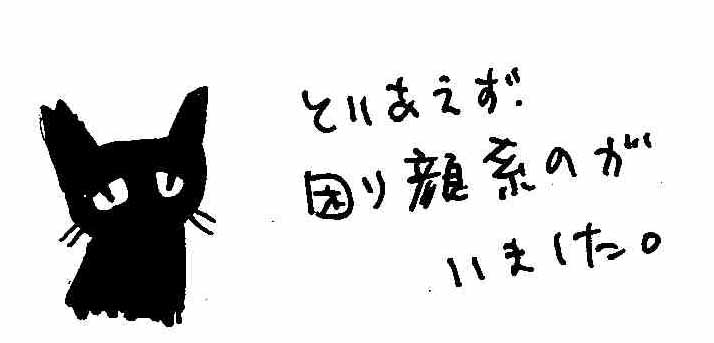 とりあえず、
困り顔系のが
いました。